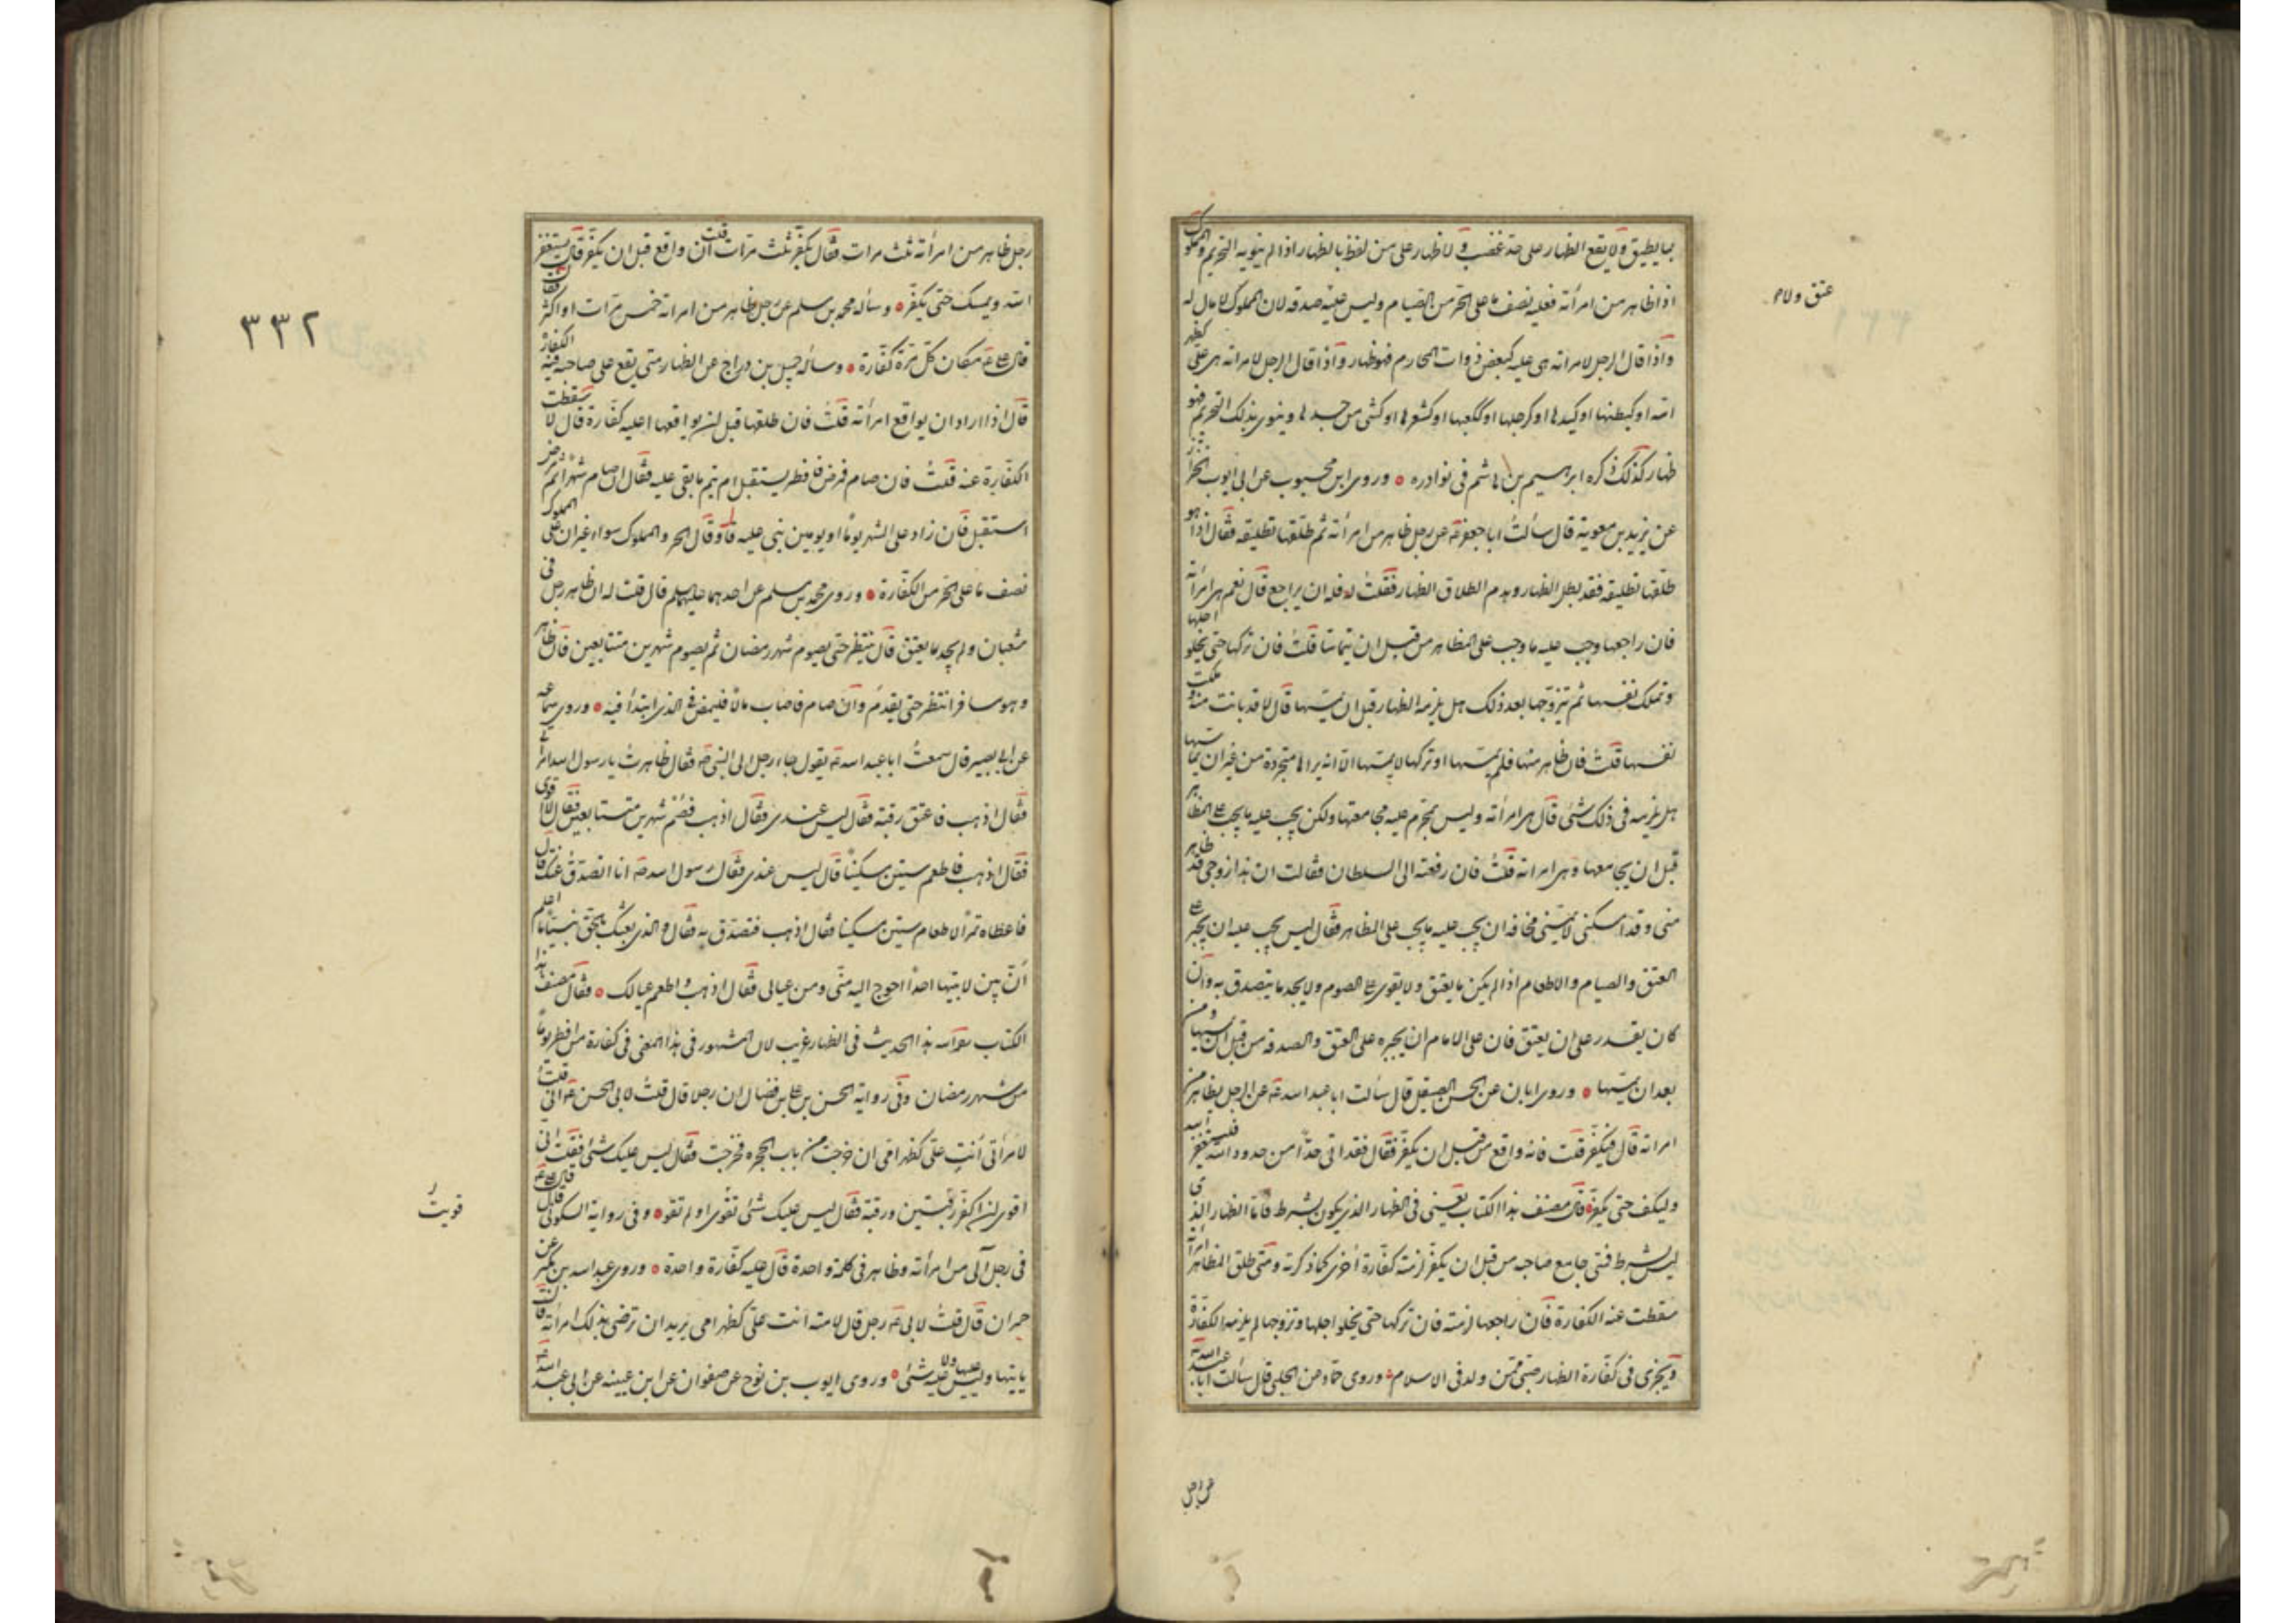 بما يطيق ولا يقع الظهار على حد غضب ولا ظهار على من لفظ بالظهار اذا لم ينو به التحريم والمملوك
اذا ظاهر من امرأته فعليه نصف ما على الحر من الصيام وليس عليه صدقة لان المملوك لا مال له
عتق ولا م
واذا قال الرجل لامرأته هي عليه كبعض ذوات المحارم فهو ظهار واذا قال الرجل لامرأته هي على كظهر
امه او كبطنها او كيدها او كرجلها او ككعبها او كشعرها او كشئ من جسدها وينوى بذلك التحريم فهو
ظهار كذلك ذكره ابرهيم بن هاشم في نوادره وروى ابن محبوب عن ابى ايوب الخزاز
عن يزيد بن معوية قال سألت ابا جعفر عن رجل ظاهر من امرأته ثم طلقها تطليقة فقال اذا هو
طلقها تطليقة فقد بطل الظهار وهدم الطلاق الظهار فقلت له فله ان يراجع قال نعم هى امرأته
فان راجعها وجب عليه ما وجب على المظاهر من قبل ان يتماسا قلت فان تركها حتى يخلو اجلها
وتملك نفسها ثم تزوجها بعد ذلك هل يلزمه الظهار قبل ان يمسها قال لا قد بانت منه وملكت
نفسها قلت فان ظاهر منها فلم يمسها او تركها لا يمسها الا انه يراها متجردة من غير ان يمسها
هل يلزمه في ذلك شئ قال هى امرأته وليس بمحرم عليه مجامعتها ولكن يجب عليه ما يجب على المظاهر
قبل ان يجامعها وهى امرأته قلت فان رفعته الى السلطان فقالت ان هذا زوجى قد ظاهر
منى وقد امسكنى لا يمسنى مخافة ان يجب عليه ما يجب على المظاهر فقال ليس يجب عليه ان يجبر على
العتق والصيام والاطعام اذا لم يكن ما يعتق ولا يقوى على الصوم ولا يجد ما يتصدق به وان
كان يقدر على ان يعتق فان على الامام ان يجبره على العتق والصدقة من قبل ان يمسها ومن
بعد ان يمسها وروى ابان عن الحسن الصيقل قال سألت ابا عبد الله عن الرجل يظاهر من
امرأته قال فيكفر قلت فانه واقع من قبل ان يكفر فقال فقد اتى حدا من حدود الله فليستغفر الله
وليكف حتى يكفر قال مصنف هذا الكتاب يعنى في الظهار الذى يكون بشرط فاما الظهار الذى
ليس بشرط فمتى جامع صاحبه من قبل ان يكفر لزمته كفارة أخرى كما ذكرته ومتى طلق المظاهر امرأته
سقطت عنه الكفارة فان راجعها لزمته فان تركها حتى يخلو اجلها وتزوجها لم يلزمه الكفارة
ويجزى في كفارة الظهار صبى ممن ولد في الاسلام وروى حماد عن الحلبى قال سألت ابا عبد الله
عن رجل
رجل ظاهر من امرأته ثلث مرات فقال يكفر ثلث مرات قلت ان واقع قبل ان يكفر قال يستغفر
الله ويمسك حتى يكفر وسأله محمد بن مسلم عن رجل ظاهر من امرأته خمس مرات او اكثر
٣٣٢
قال على ع مكان كل مرة كفارة وسأله جميل بن دراج عن الظهار متى يقع على صاحبه فيه الكفارة
قال اذا اراد ان يواقع امرأته قلت فان طلقها قبل ان يواقعها اعليه كفارة قال لا سقطت
الكفارة عنه قلت فان صام فمرض فافطر يستقبل ام يتم ما بقى عليه فقال ان صام شهرا ثم مرض
استقبل فان زاد على الشهر يوما او يومين بنى عليه وقال الحر والمملوك سواء غير ان على المملوك
نصف ما على الحر من الكفارة وروى محمد بن مسلم عن احدهما عليهما السلم قال قلت له ان ظاهر رجل في
شعبان ولم يجد ما يعتق قال ينتظر حتى يصوم شهر رمضان ثم يصوم شهرين متتابعين فان ظاهر
وهو مسافر انتظر حتى يقدم وان صام فاصاب مالا فليمض في الذى ابتدأ فيه وروى سماعة
عن ابى بصير قال سمعت ابا عبد الله يقول جاء رجل الى النبى ص فقال ظاهرت يا رسول الله
فقال اذهب فاعتق رقبة فقال ليس عندى فقال اذهب فصم شهرين متتابعين فقال لا اقوى
فقال اذهب فاطعم ستين مسكينا قال ليس عندى فقال رسول الله ص انا اتصدق عنك قال
فاعطاه تمرا لاطعام ستين مسكينا فقال اذهب فتصدق به فقال والذى بعثك بالحق نبيا ما اعلم
ان بين لابتيها احدا احوج اليه منى ومن عيالى فقال اذهب واطعم عيالك فقال مصنف هذا
الكتاب هذا الحديث في الظهار غريب لان المشهور في هذا المعنى في كفارة من افطر يوما
من شهر رمضان وفى رواية الحسن بن على بن فضال ان رجلا قال قلت لابى الحسن ع انى قلت
لامرأتى أنت على كظهر امى ان خرجت من باب الحجرة فخرجت فقال ليس عليك شئ فقلت انى
اقوى ان اكفر رقبتين ورقبة فقال ليس عليك شئ تقوى او لم تقو وفى رواية السكونى قال قال على ع
قويت
في رجل آلى من امرأته وظاهر في كلمة واحدة قال عليه كفارة واحدة وروى عبد الله بن بكير عن
حمران قال قلت لابى ع رجل قال لامته انت على كظهر امى يريد ان ترضى بذلك امرأته قال
يأتيها وليس عليها ولا عليه شئ وروى ايوب بن نوح عن صفوان عن ابن عيينة عن ابى عبد الله